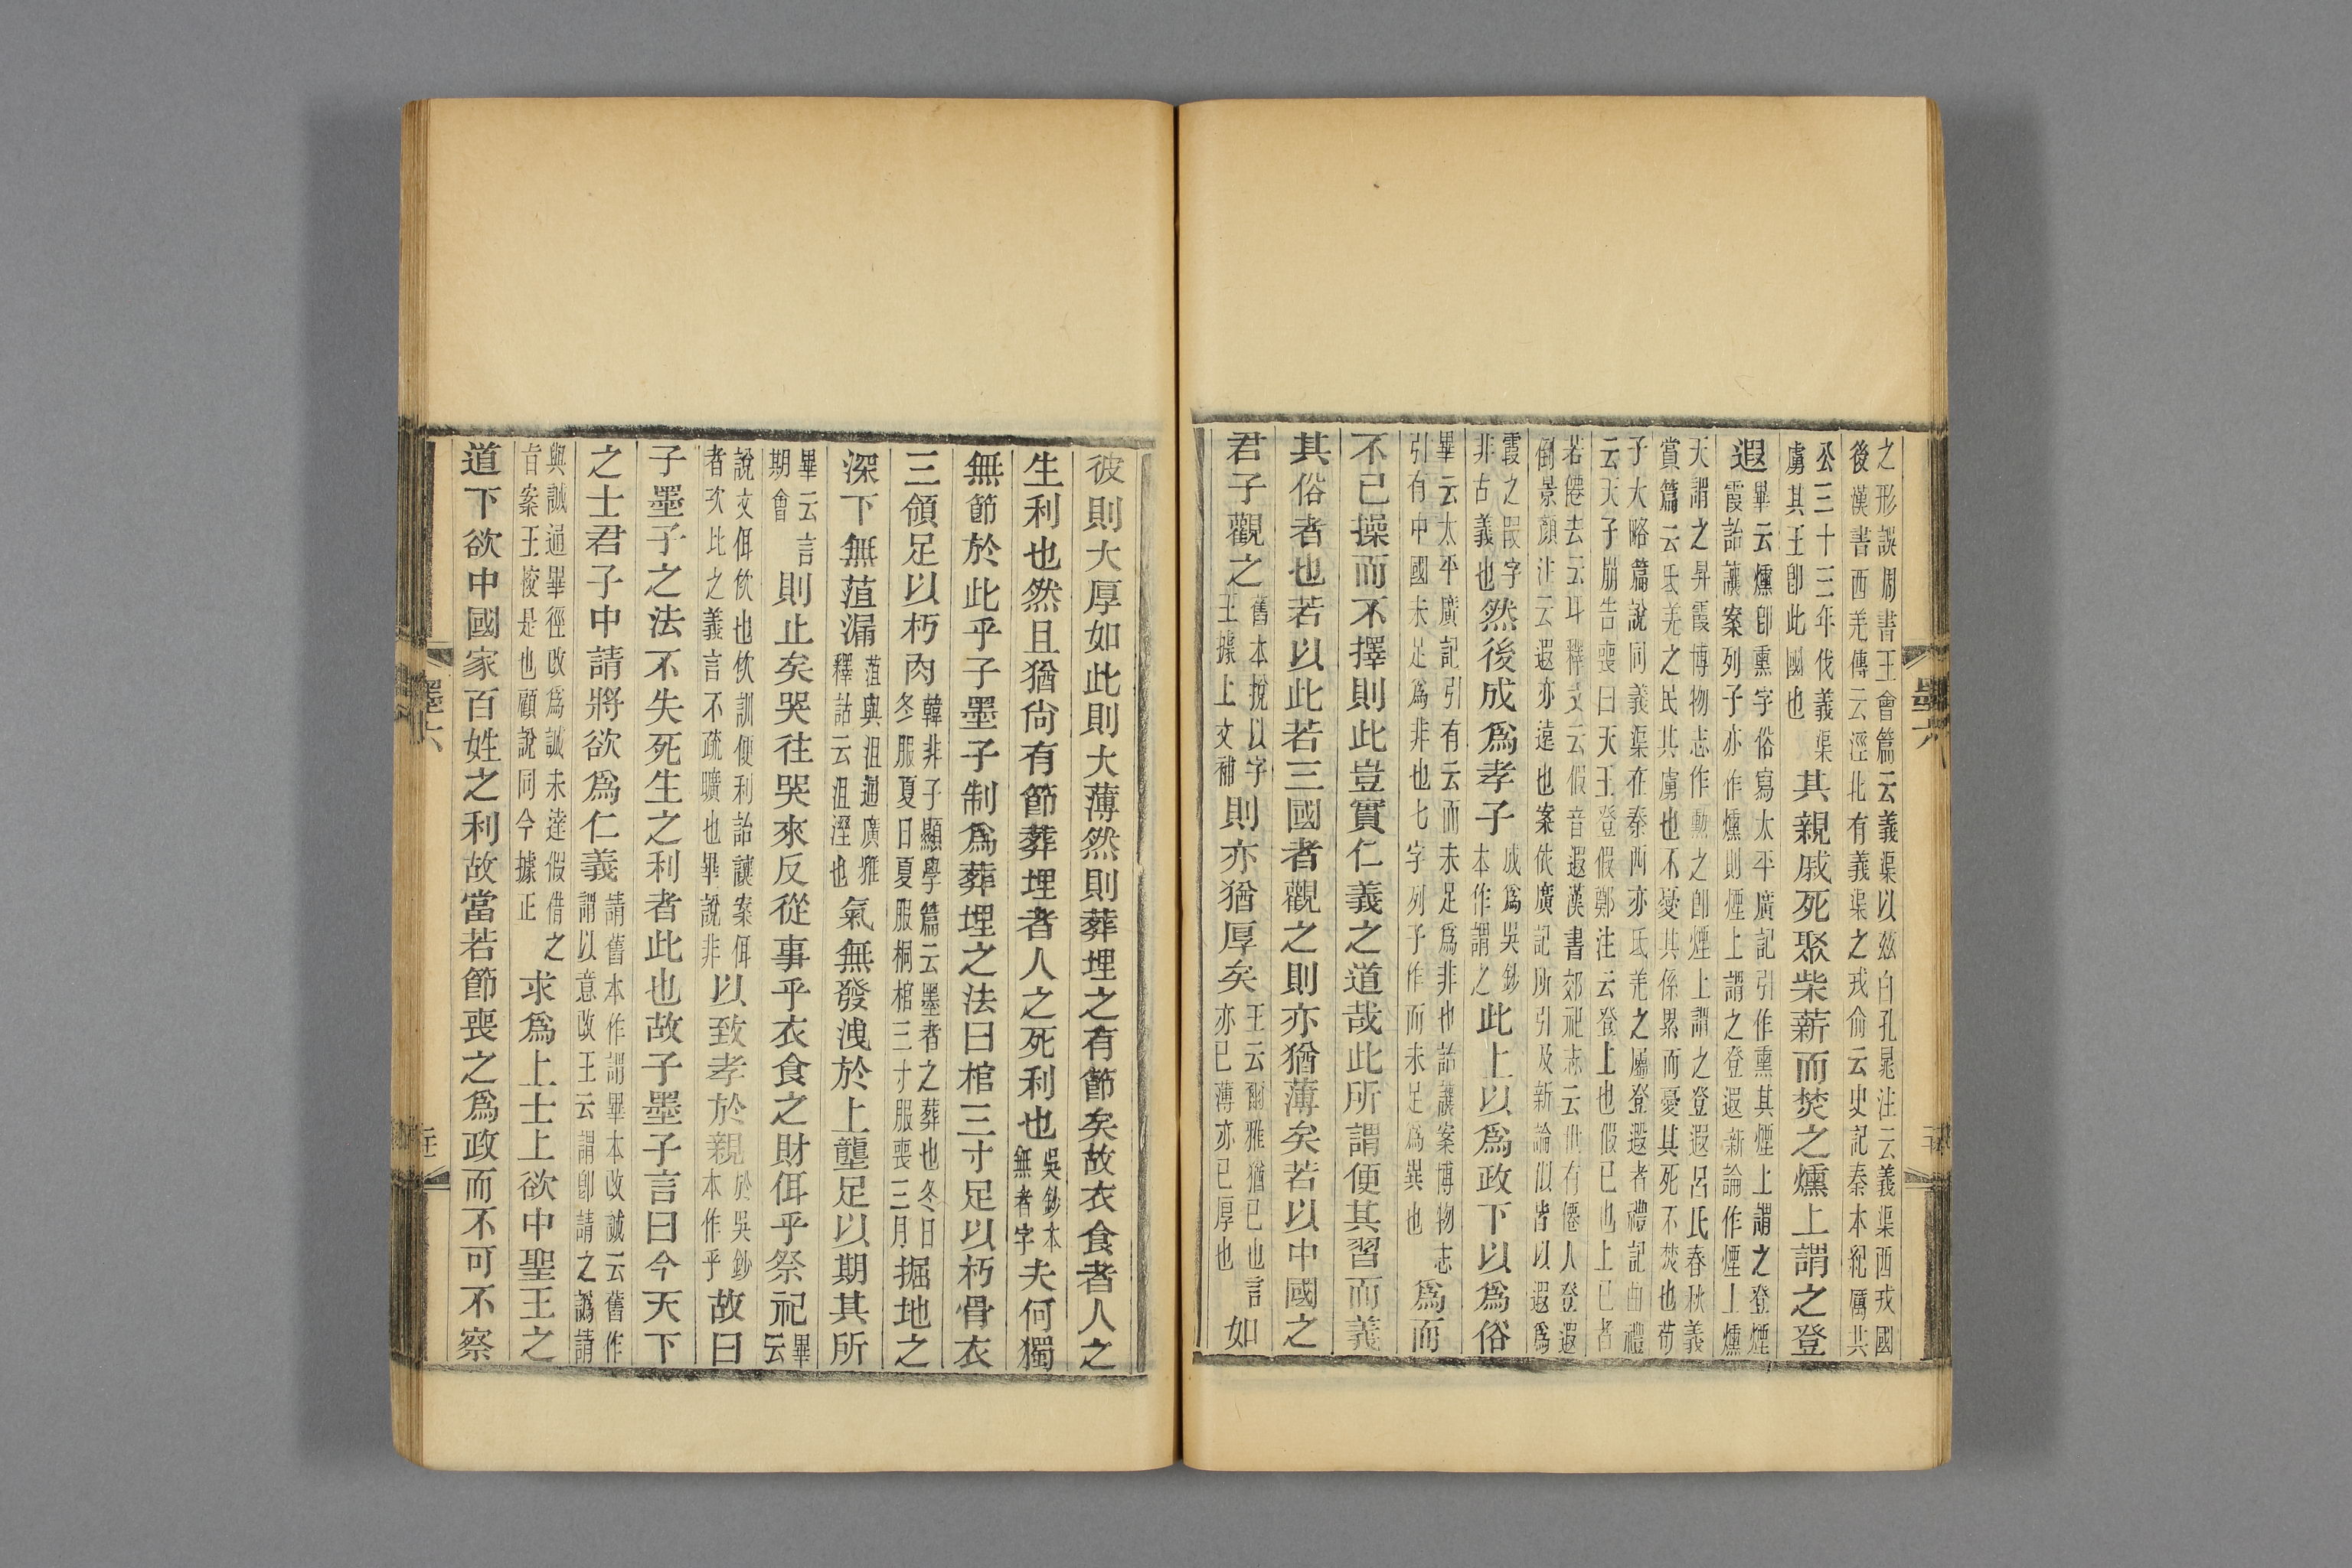 之形誤周書王會篇云義渠以茲白孔晁注云義渠西戎國
後漢書西羌傳云涇北有義渠之戎俞云史記秦本紀厲共
公三十三年伐義渠
虜其王卽此國也其親戚死聚柴薪而焚之燻上謂之登
遐畢云燻卽熏字俗寫太平廣記引作熏其煙上謂之登煙
霞詒讓案列子亦作燻則煙上謂之登遐新論作煙上燻
天謂之昇霞博物志作勳之卽煙上謂之登遐呂氏春秋義
賞篇云氐羌之民其虜也不憂其係累而憂其死不焚也荀
子大略篇說同義渠在秦西亦氐羌之屬登遐者禮記曲禮
云天子崩告喪曰天王登假鄭注云登上也假已也上已者
若僊去云耳釋文云假音遐漢書郊祀志云世有僊人登遐
倒景顏注云遐亦遠也案依廣記所引及新論似皆以遐爲
霞之叚字
非古義也然後成爲孝子成爲吳鈔
本作謂之此上以爲政下以爲俗
畢云太平廣記引有云而未足爲非也詒讓案博物志
引有中國未足爲非也七字列子作而未足爲異也爲而
不已操而不擇則此豈實仁義之道哉此所謂便其習而義
其俗者也若以此若三國者觀之則亦猶薄矣若以中國之
君子觀之舊本捝以字
王據上文補則亦猶厚矣王云爾雅猶已也言
亦已薄亦已厚也如
彼則大厚如此則大薄然則葬埋之有節矣故衣食者人之
生利也然且猶尙有節葬埋者人之死利也吳鈔本
無者字夫何獨
無節於此乎子墨子制爲葬埋之法曰棺三寸足以朽骨衣
三領足以朽肉韓非子顯學篇云墨者之葬也冬日
冬服夏日夏服桐棺三寸服喪三月掘地之
深下無菹漏菹與沮通廣雅
釋詁云沮溼也氣無發洩於上壟足以期其所
畢云言
期會則止矣哭往哭來反從事乎衣食之財佴乎祭祀畢
云
說文佴佽也佽訓便利詒讓案佴
者次比之義言不疏曠也畢說非以致孝於親於吳鈔
本作乎故曰
子墨子之法不失死生之利者此也故子墨子言曰今天下
之士君子中請將欲爲仁義請舊本作謂畢本改誠云舊作
謂以意改王云謂卽請之譌請
與誠通畢徑改爲誠未達假借之
旨案王校是也顧說同今據正求爲上士上欲中聖王之
道下欲中國家百姓之利故當若節喪之爲政而不可不察
墨六
墨六